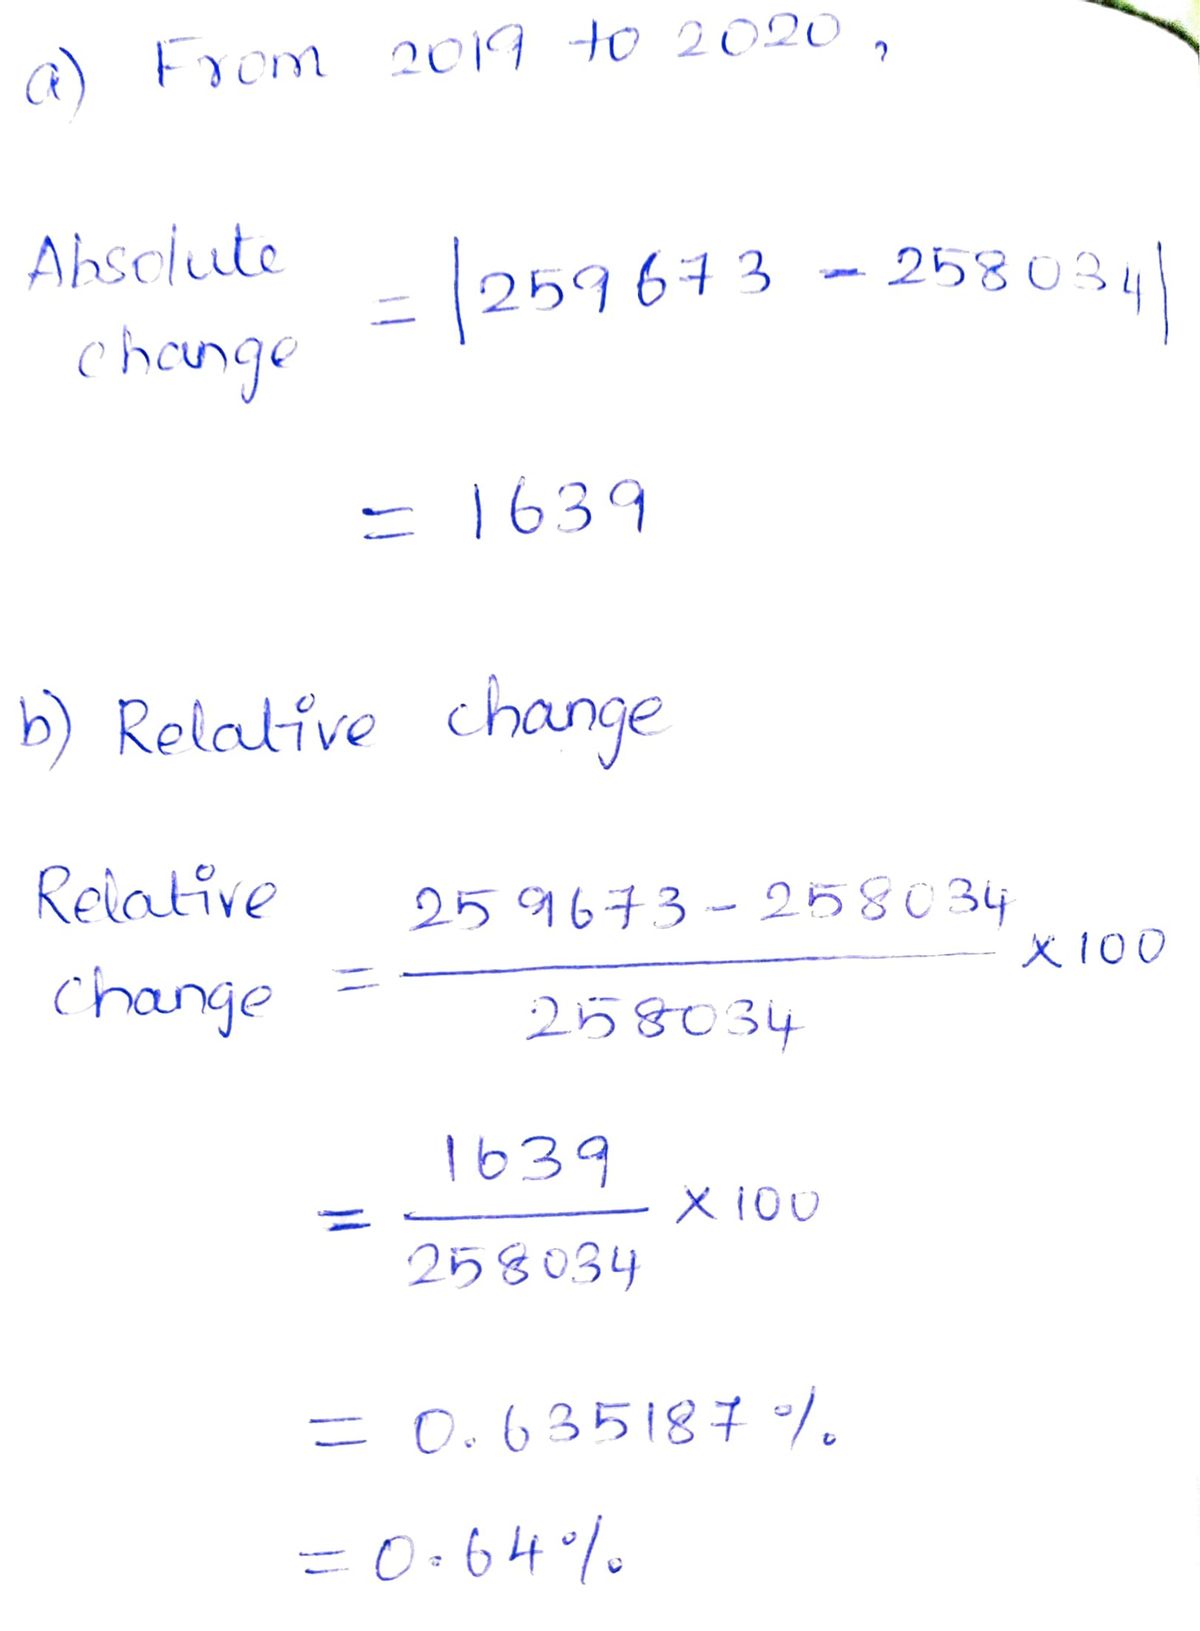 a) From 2019 to 2020,
Absolute change = |259673 - 258034|
= 1639
b) Relative change
Relative change = 259673 - 258034 / 258034 × 100
= 1639 / 258034 × 100
= 0.635187 %
= 0.64 %